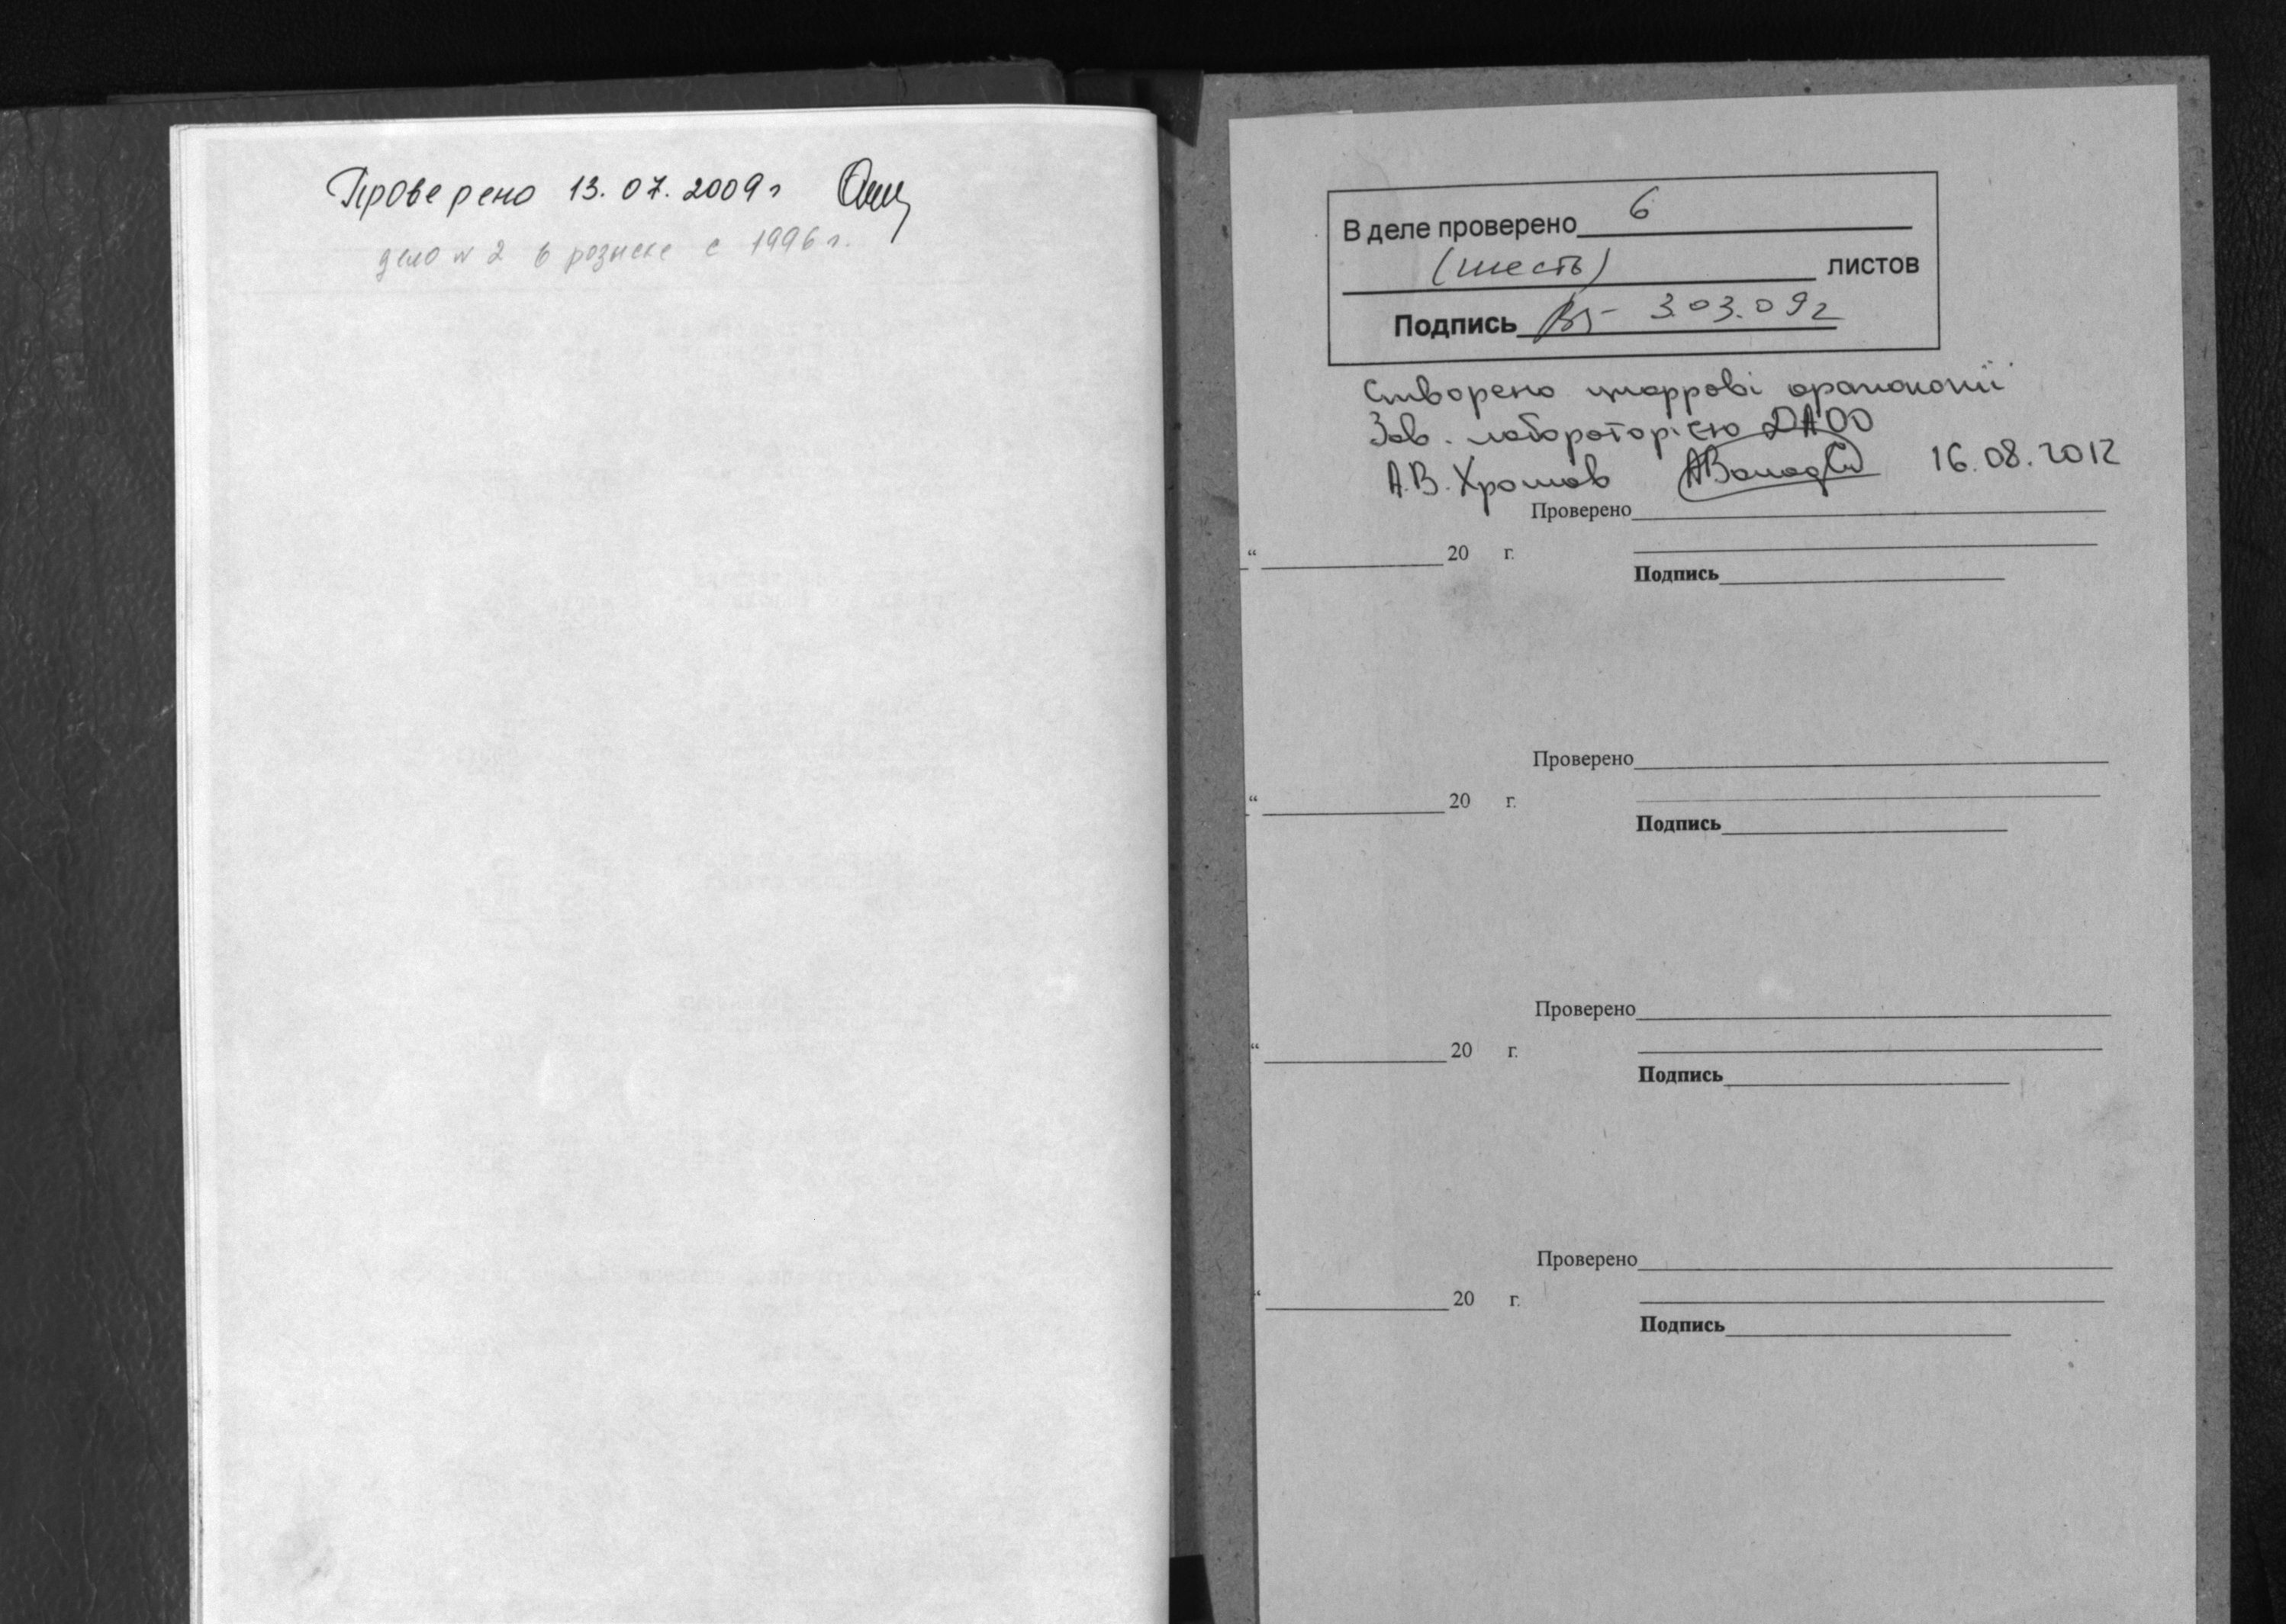 Проверено 13.07.2009 г
дело N 2 в розыске с 1996 г.
В деле проверено 6
(шесть) листов
Подпись 3.03.09г
Створено цифрові фотокопії
Зав. лабораторією ДАОО
А.В. Хромов 16.08.2012
Проверено
“ 20 г.
Подпись
Проверено
“ 20 г.
Подпись
Проверено
“ 20 г.
Подпись
Проверено
“ 20 г.
Подпись